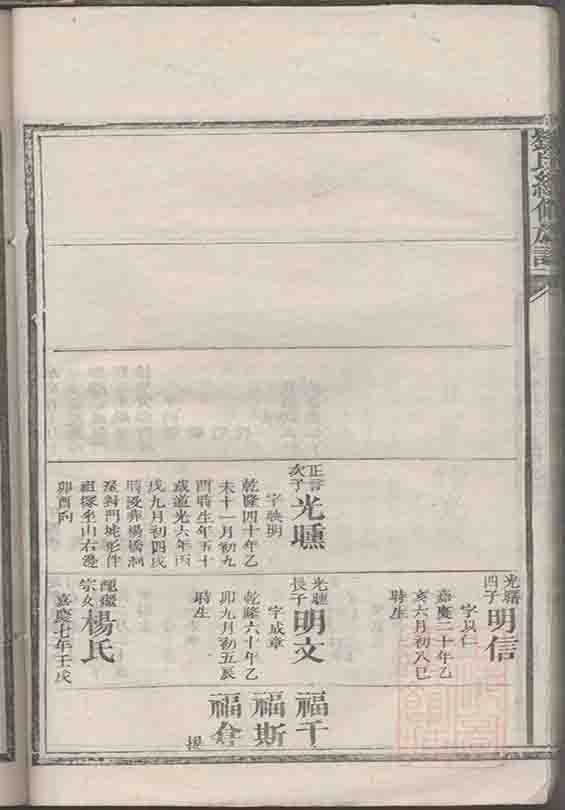 劉氏續修族譜
正言
次子
光曛
字映明
乾隆四十年乙
未十一月初九
酉時生年五十
歲道光六年丙
戌九月初四戌
時歿葬楊橋洞
對門地形件
祖塚坐山右邊
卯酉向
光曙
四子
明信
字以仁
嘉慶二十年乙
亥六月初八巳
時生
光曛
長子
明文
字成章
乾隆六十年乙
卯九月初五辰
時生
配
宗女
楊氏
嘉慶七年壬戌
福千
福斯
福倉